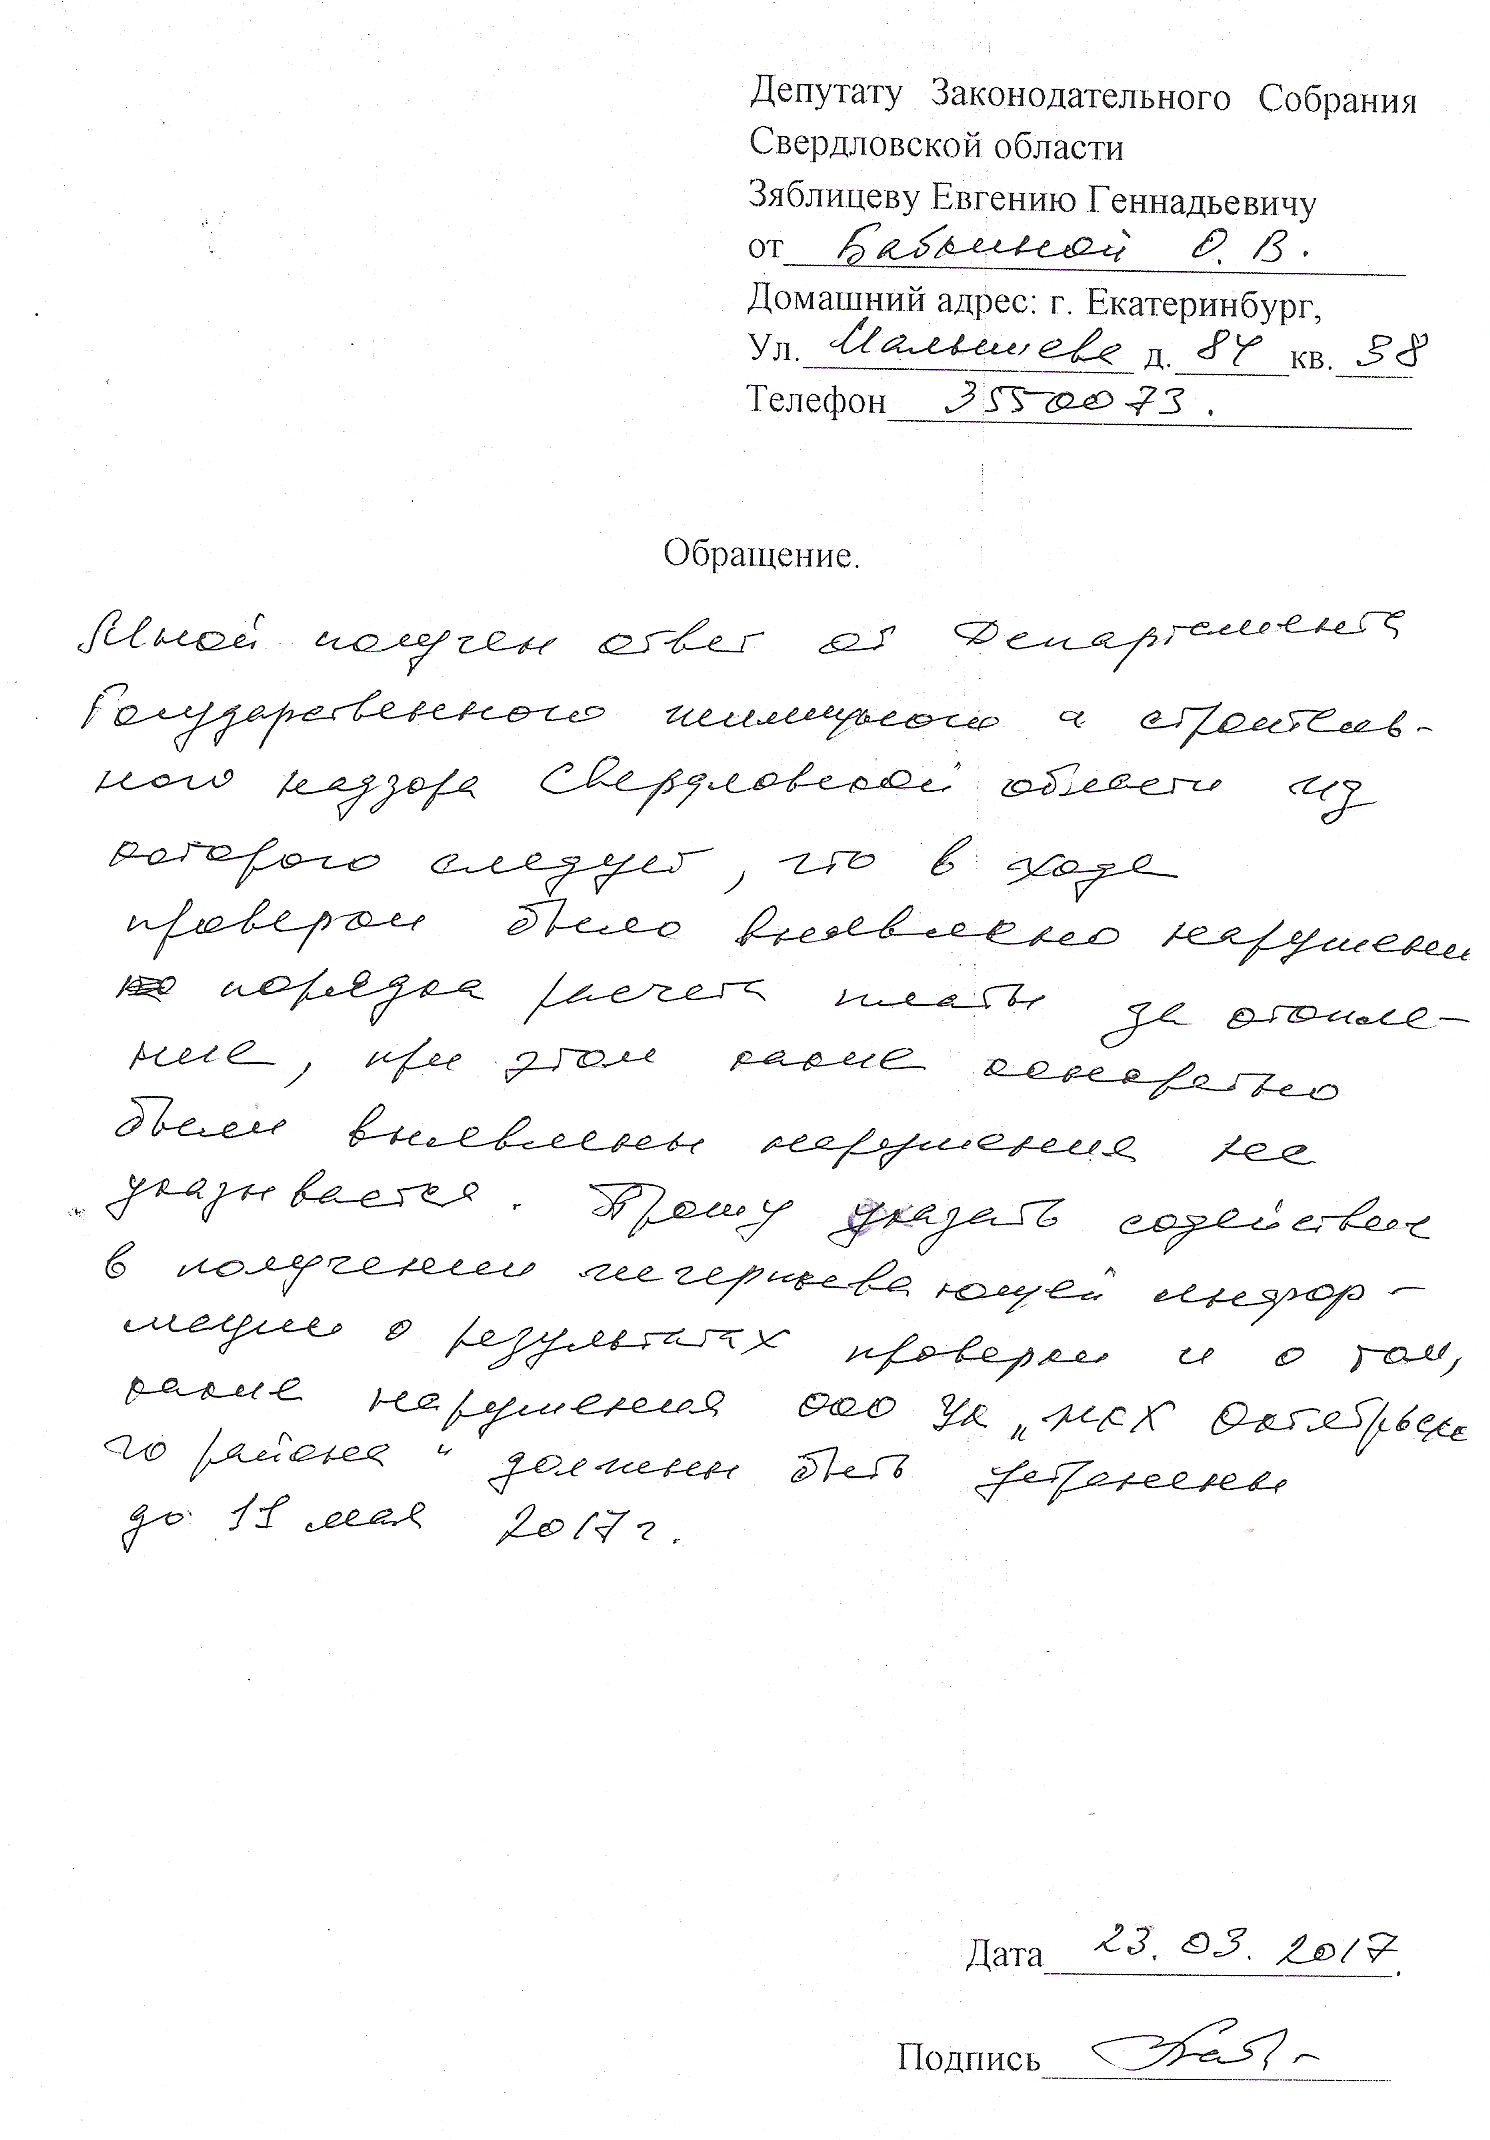 Депутату Законодательного Собрания
Свердловской области
Зяблицеву Евгению Геннадьевичу
от Бабкиной О. В.
Домашний адрес: г. Екатеринбург,
Ул. Малышева д. 84 кв. 38
Телефон 3550073.
Обращение.
Мной получен ответ от Департамента
Государственного жилищного и строитель-
ного надзора Свердловской области из
которого следует, что в ходе
проверки было выявлено нарушени
порядка расчета платы за отопле-
ние, при этом какие конкретно
были выявлены нарушения не
указывается. Прошу оказать содействие
в получении исчерпывающей инфор-
мации о результатах проверки и о том,
какие нарушения ООО УК „ЖКХ Октябрьско
го района“ должны быть устранены
до 11 мая 2017 г.
Дата 23.03.2017.
Подпись